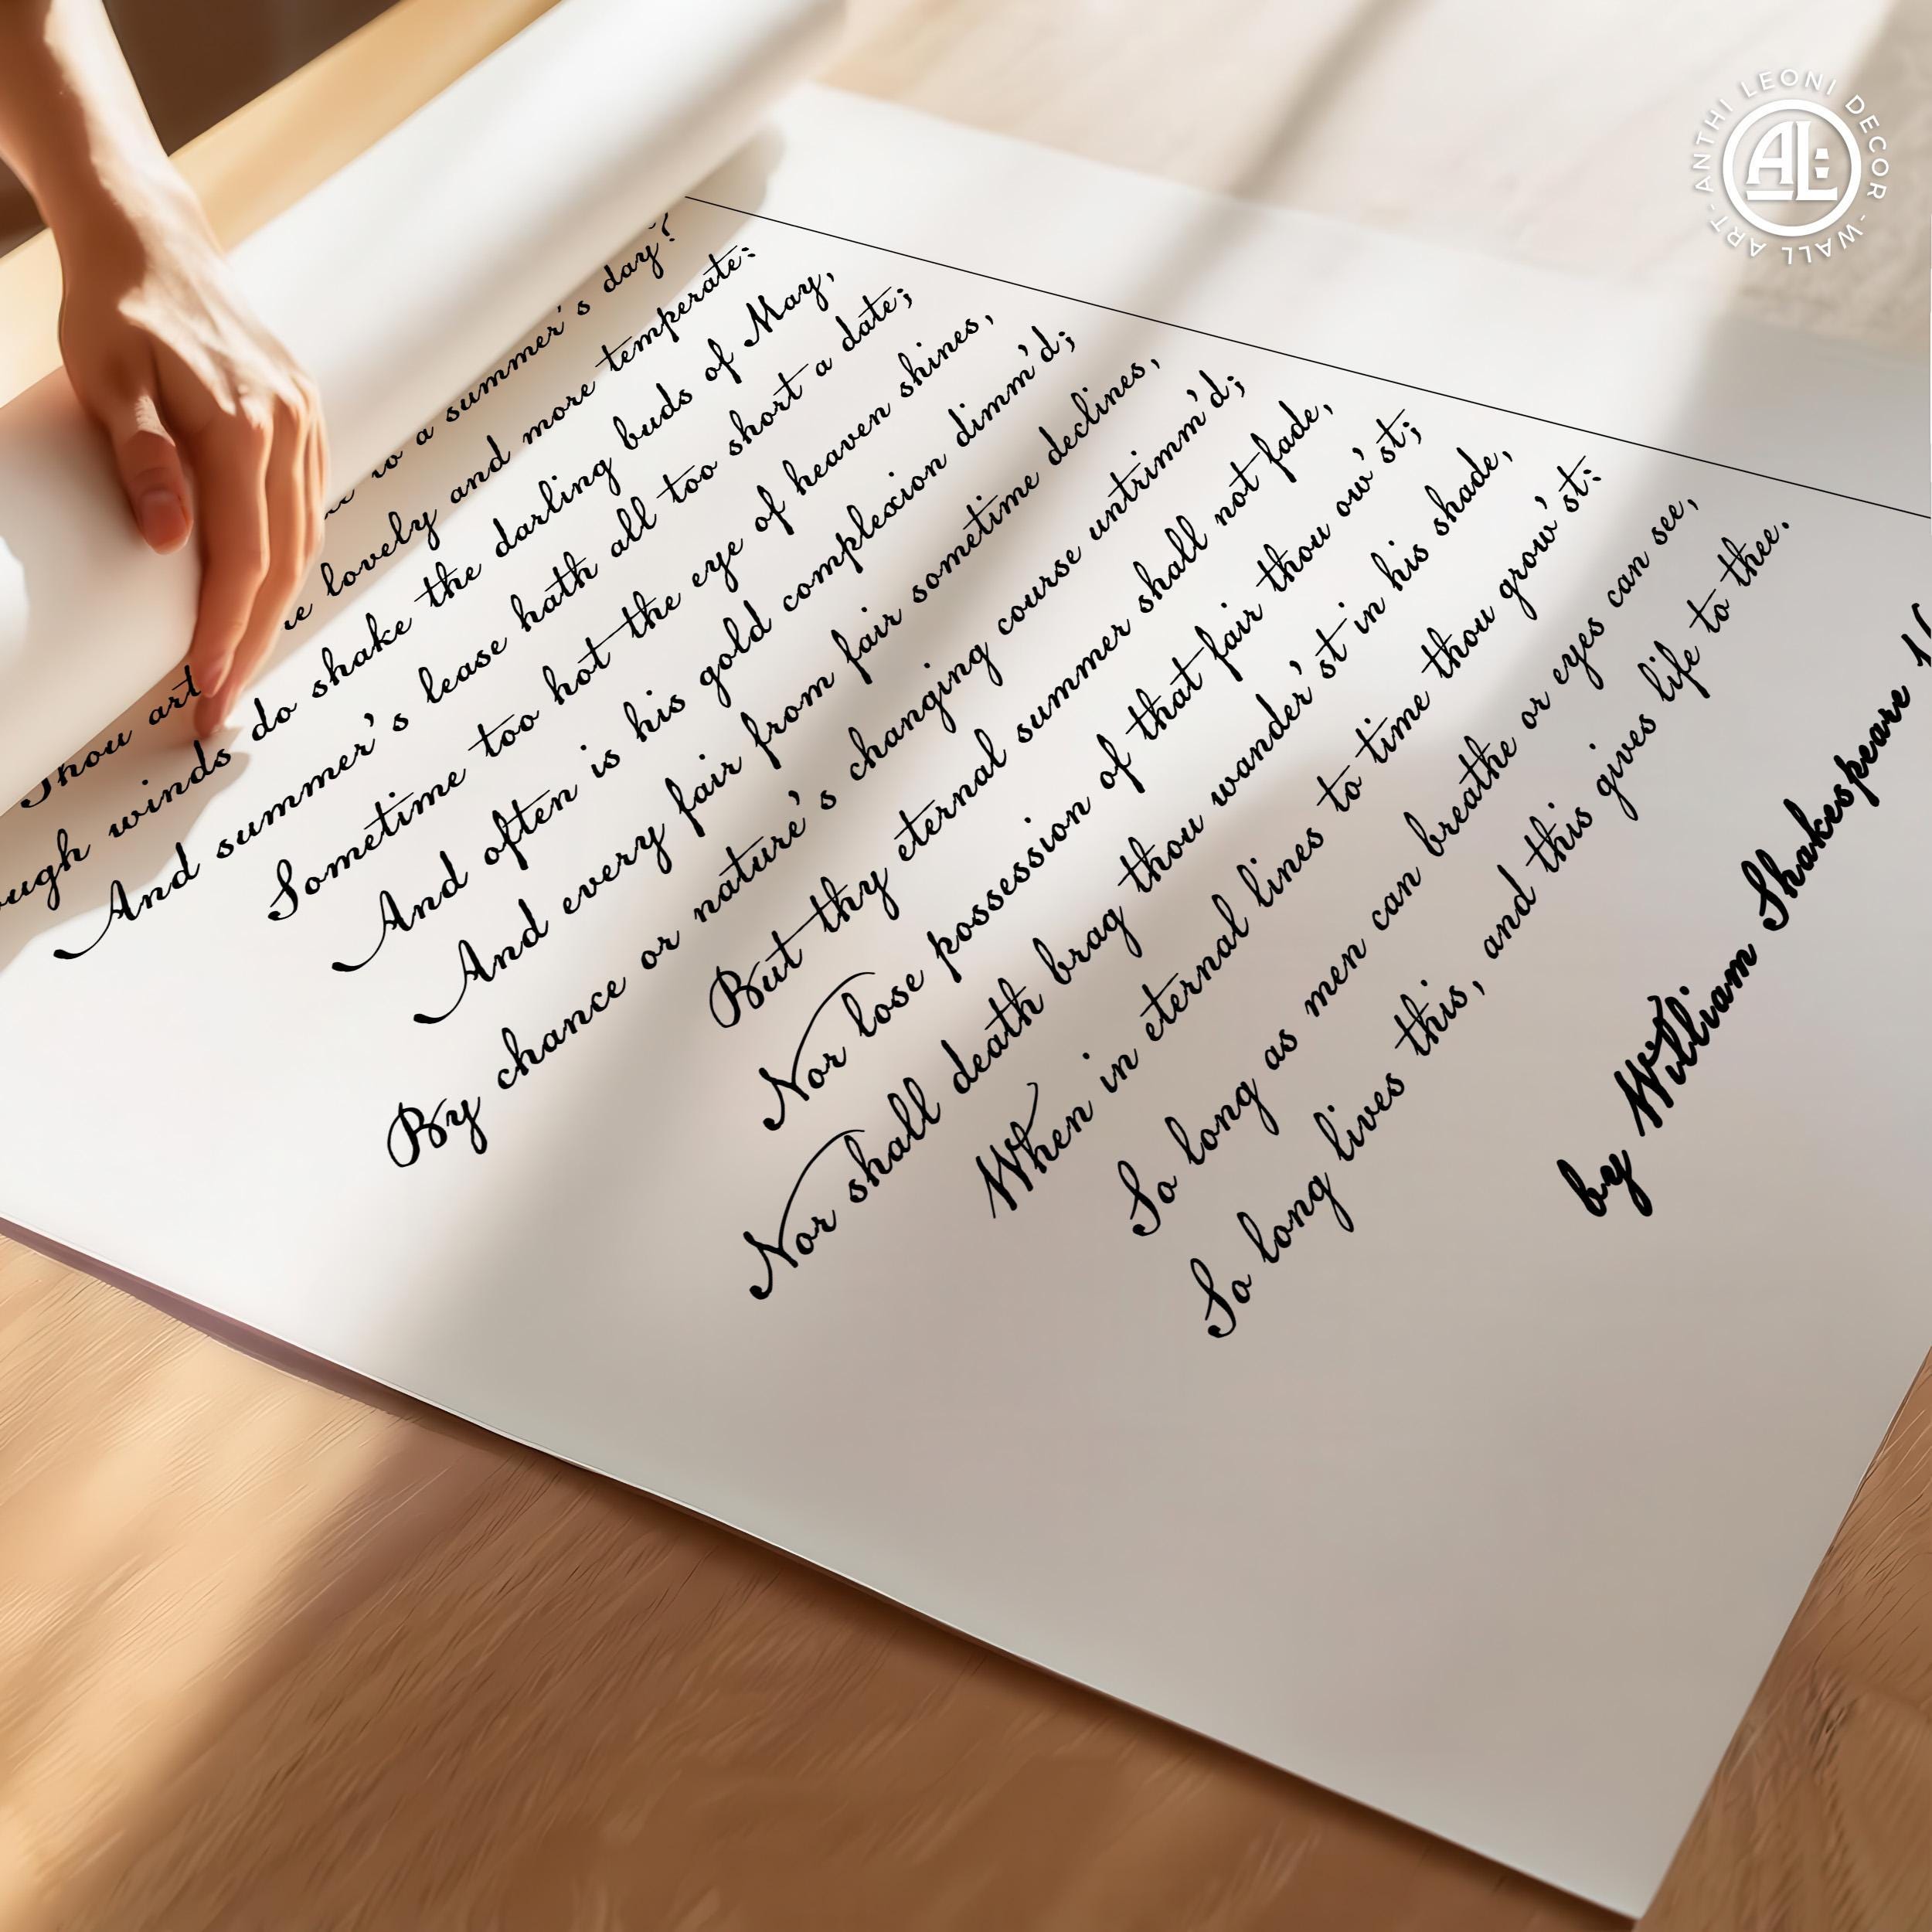 to a summer's day?
Thou art lovely and more temperate:
winds do shake the darling buds of May,
And summer's lease hath all too short a date;
Sometime too hot the eye of heaven shines,
And often is his gold complexion dimm'd;
And every fair from fair sometime declines,
By chance or nature's changing course untrimm'd;
But thy eternal summer shall not fade,
Nor lose possession of that fair thou ow'st;
Nor shall death brag thou wander'st in his shade,
When in eternal lines to time thou grow'st:
So long as men can breathe or eyes can see,
So long lives this, and this gives life to thee.
by William Shakespeare
ANTHI LEONI DECOR - WALL ART -
AL